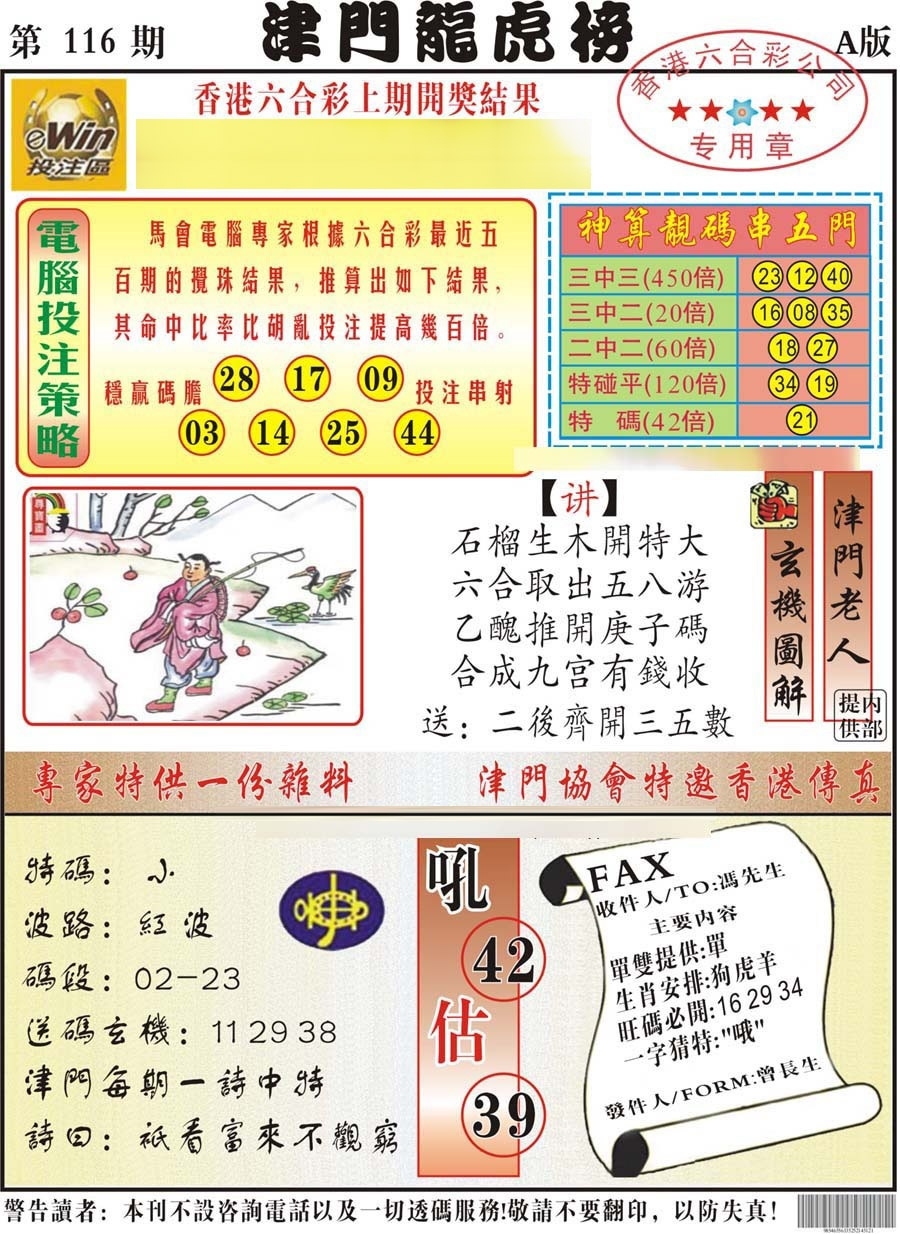 第 116 期
津門龍虎榜
A版
香港六合彩公司
★★★★
专用章
eWin
投注區
香港六合彩上期開獎結果
電腦投注策略
馬會電腦專家根據六合彩最近五
百期的攪珠結果，推算出如下結果，
其命中比率比胡亂投注提高幾百倍。
穩贏碼膽 28 17 09 投注串射
03 14 25 44
神算靚碼串五門
三中三(450倍) 23 12 40
三中二(20倍) 16 08 35
二中二(60倍) 18 27
特碰平(120倍) 34 19
特 碼(42倍) 21
尋寶圖
【讲】
石榴生木開特大
六合取出五八游
乙醜推開庚子碼
合成九宮有錢收
送：二後齊開三五數
玄機圖解
津門老人
内部提供
專家特供一份雜料
津門協會特邀香港傳真
特碼：小
波路：紅波
碼段：02-23
送碼玄機：11 29 38
津門每期一詩中特
詩曰：祇看富來不觀窮
吼
42
估
39
FAX
收件人/TO:馮先生
主要内容
單雙提供:單
生肖安排:狗虎羊
旺碼必開:16 29 34
一字猜特:"哦"
發件人/FORM:曾長生
警告讀者：本刊不設咨詢電話以及一切透碼服務!敬請不要翻印，以防失真!